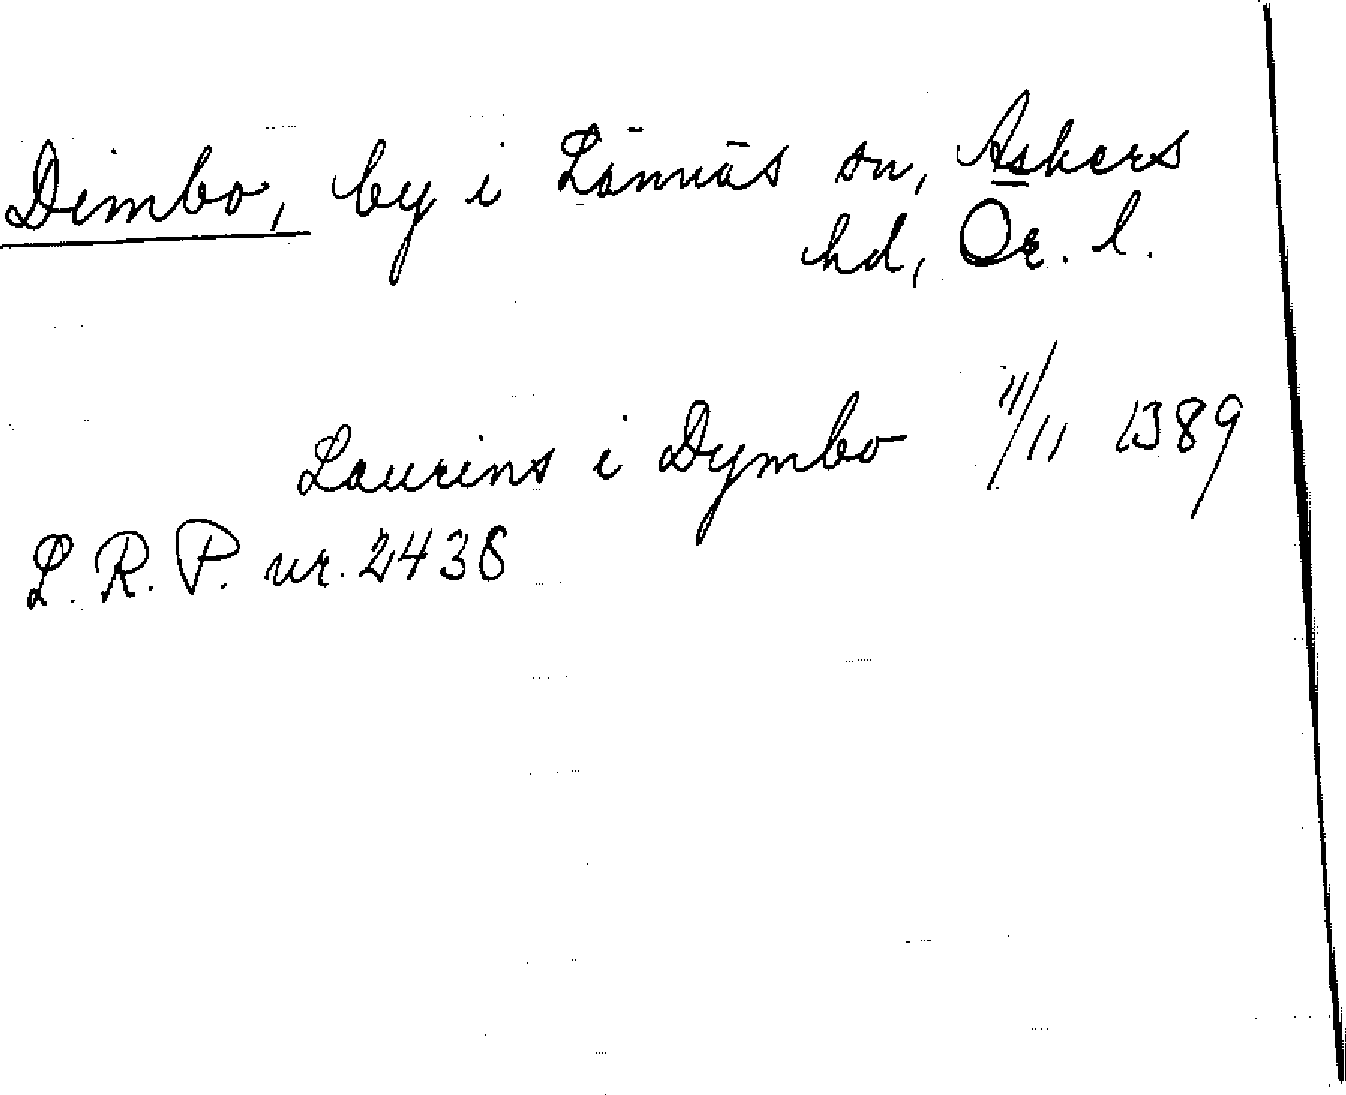 Dimbo, by i Lännäs sn, Askers
hd, Ör. l.
Laurins i Dymbo 11/11 1389
S. R. P. nr. 2438